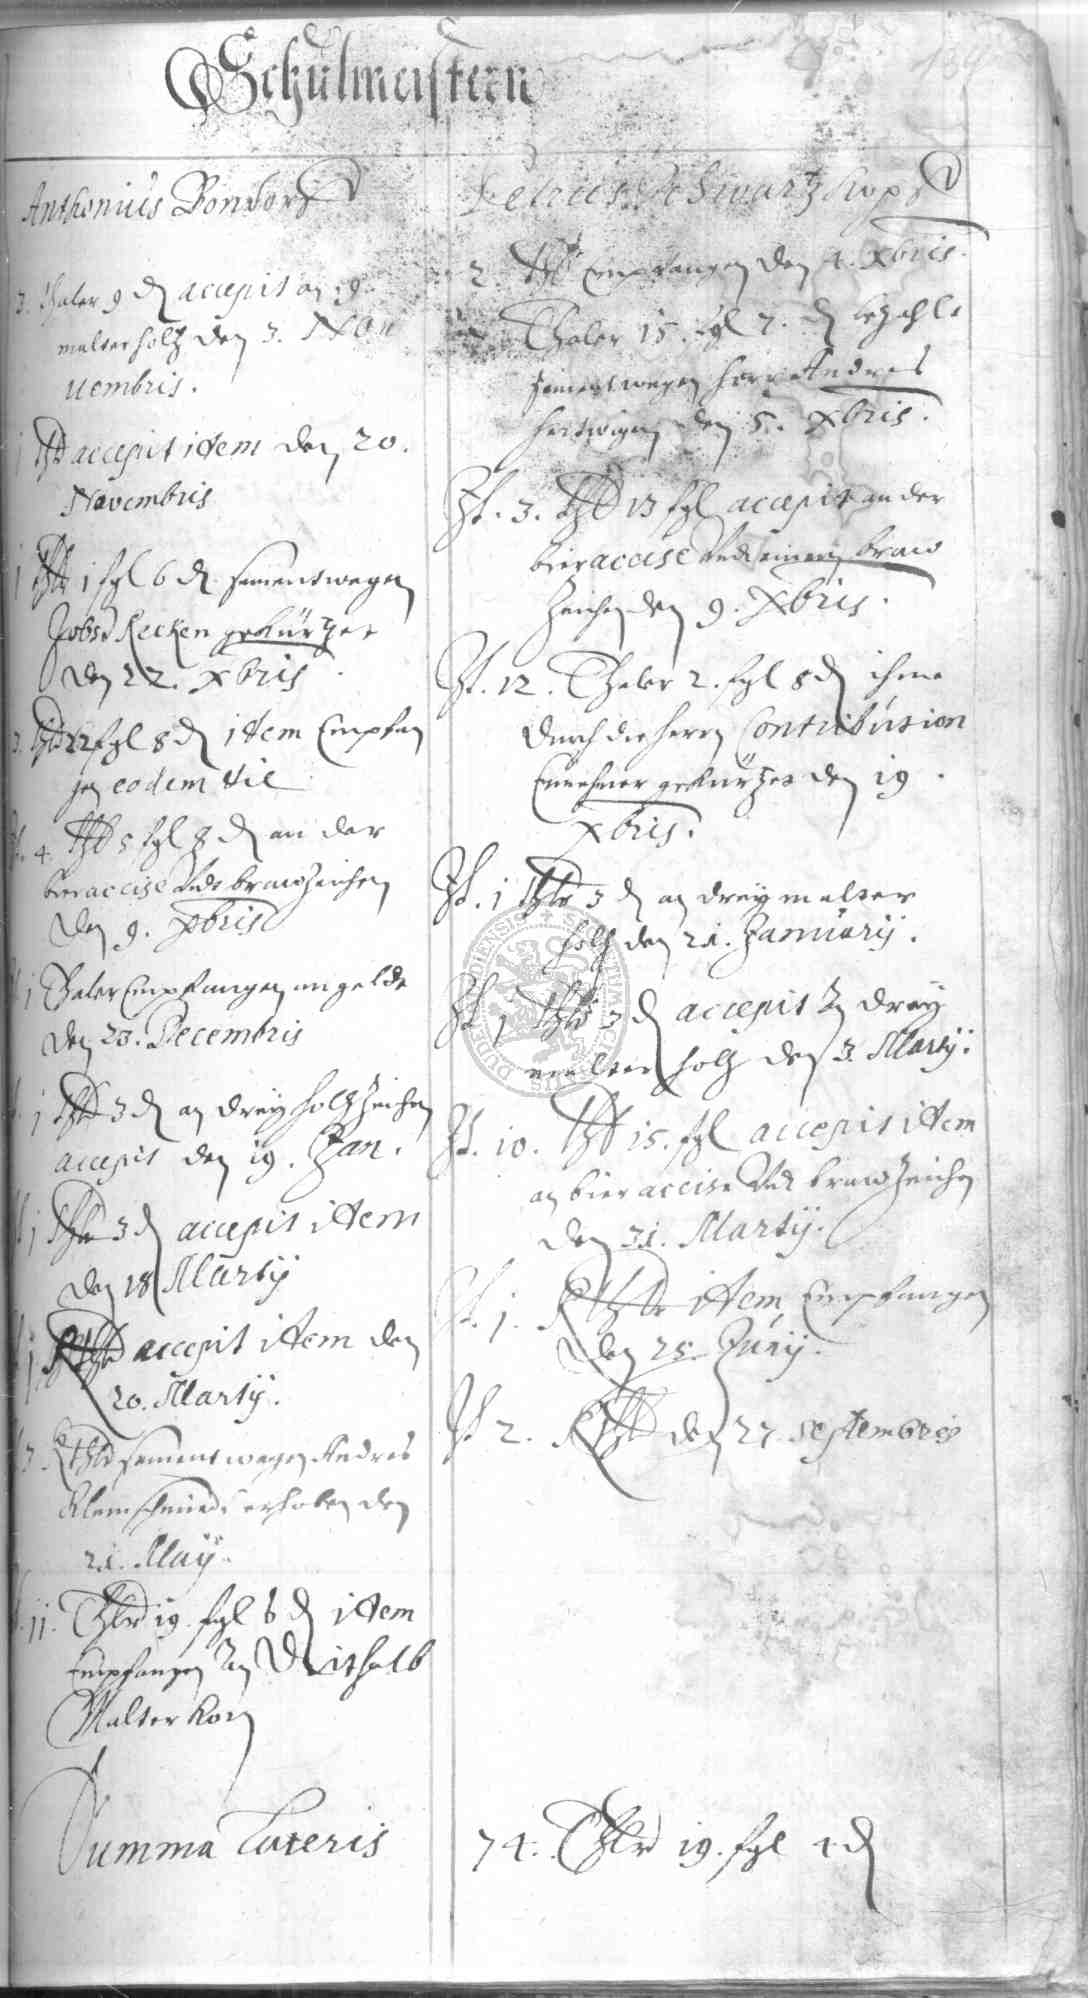 139
Schulmeistern
Anthonius Bondorff
3. thaler 9 d accepit an 9
malter holtz den 3. No
uembris.
1 thlr accepit item den 20.
Novembris
1 thlr 1 fgl 6 d sementswegen
Jobst Recken gekürtzet
den 22. xbris
3. thlr 22 fgl 8 d item Empfan
gen eodem die
4. thlr 5 fgl 8 d an der
bieraccise Vndt brawzeichen
den 9. xbris
1 Thaler Empfangen an gelde
den 23. Decembris
1 thlr 3 d an drey holtzzeichen
accepit den 19. Jan.
1 thlr 3 d accepit item
den 18 Martij
1 Rthlr accepit item den
20. Martij.
3 Rthlr sementwegen Andres
Kleinschmieds erhoben den
21. Maij.
11. Thlr 19. fgl 8 d item
Empfangen an
Malter Korn
Petrus Schwartzkopf
2 thlr Empfangen den 4. xbris.
Thaler 15. fgl 7. d bezahlt
sementswegen herr Andres
hertwigen den 5. xbris.
It. 3. thlr 13 fgl accepit an der
bieraccise Vndt einem braw
zeichen den 9. xbris.
It. 12. Thaler 2. fgl 8 d ihme
durch die herrn Contribution
Einnehmer gekürtzet den 19.
xbris.
It. 1 thlr 3 d an drey malter
holtz den 21. Januarij.
It. 1 thlr 3 d accepit an drey
malter holtz den 3. Martij.
It. 10. thlr 15. fgl accepit item
an bier accise Vndt brawzeichen
den 31. Martij.
It. 1. Rthlr item Empfangen
den 25. Junij.
It 2. Rthlr den 27 Septembris
Summa Lateris 74. Thlr 19. fgl 4 d